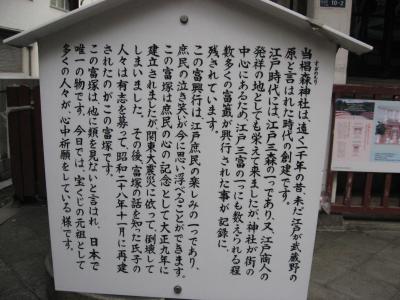 すぎのもり
当椙森神社は、遠く一千年の昔、未だ江戸が武蔵野の
原と言はれた時代の創建です。
江戸時代には、江戸三森の一つであり、又、江戸商人の
発祥の地としても栄えて来ましたが、神社が街の
中心にあるため、江戸三富の一つにも数えられる程
数多くの富籤が興行された事が記録に、
残されています。
この富興行は、江戸庶民の楽しみの一つであり、
庶民の泣き笑いが今に思い浮べることができます。
この富塚は庶民の心の記念として大正九年に
建立されましたが関東大震災に依って、倒壊して
しまいました その後、富塚の話を知った氏子の
人々は有志を募って、昭和二十八年十一月に再建
されたのがこの富塚です。
この富塚は、他に類を見ないと言はれ、日本で
唯一の物です。今日では、宝くじの元祖として
多くの人々が、心中祈願をしている様です。
10-2